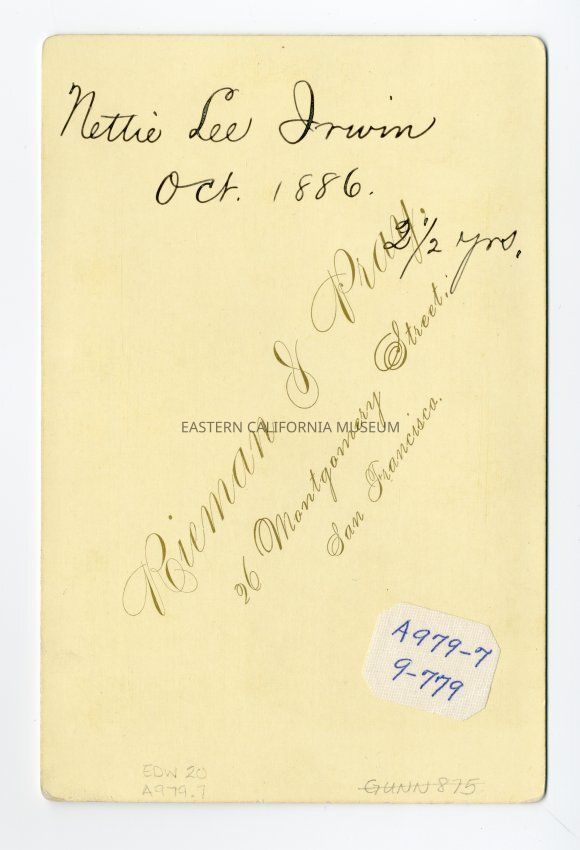 Nettie Lee Irwin
Oct. 1886.
2 1/2 yrs.
Rieman & Pray.
26 Montgomery Street,
San Francisco.
EASTERN CALIFORNIA MUSEUM
A979-7
9-779
EDW 20
A979.7
GUNN 875